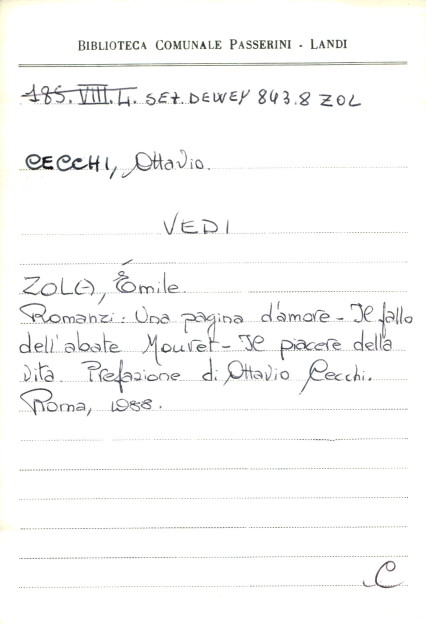 BIBLIOTECA COMUNALE PASSERINI - LANDI
185.VIII.4. SEZ. DEWEY 843.8 ZOL
CECCHI, Ottavio.
VEDI
ZOLA, Émile.
Romanzi: Una pagina d'amore - Il fallo
dell'abate Mouret - Il piacere della
vita. Prefazione di Ottavio Cecchi.
Roma, 1988.
C